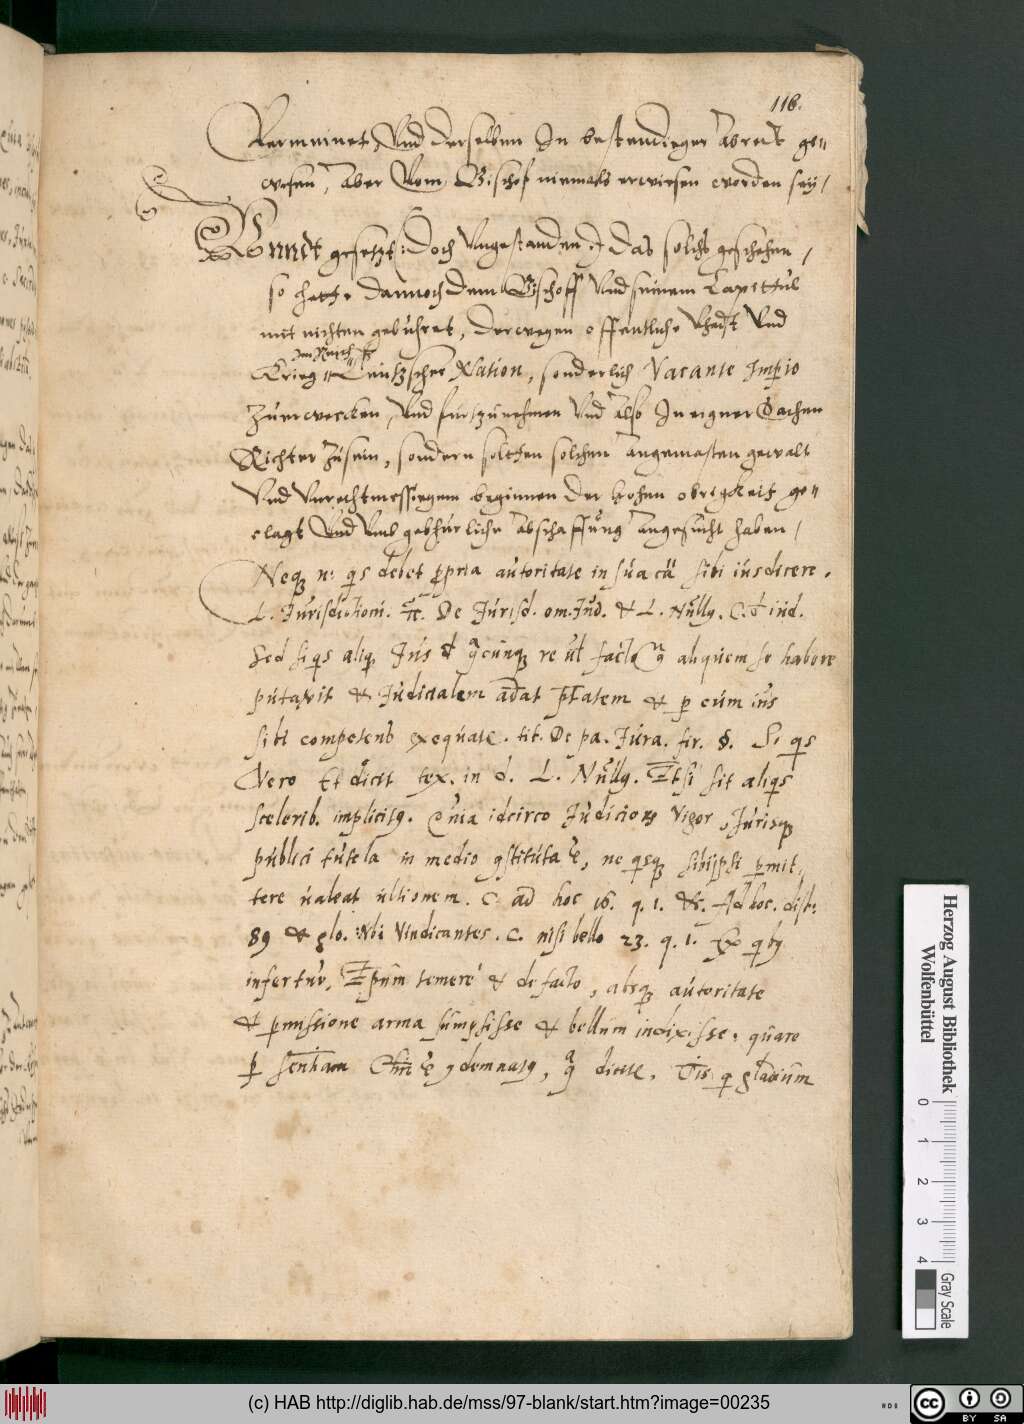 116.
Vermeinet, Vnd derselben In bestendiger abredt ge„
wesen, Aber Vom Bischof niemals erwiesen worden sey /
Vnndt gesetzt (: Doch Vngestanden :) das solchs geschehen /
so hette dannoch dem Bischoff Vnd seinem Capittul
mit nichten gebühret, derwegen offentliche Vhedt Vnd
im Reich
Krieg Teutzscher Nation, sonderlich Vacante Imp̱io
Zuerwecken, Vnd fürtzunehmen Vnd Also In eigner Sachen
Richter Zusein, sondern solthen solchen Angemasten gewalt
Vnd Vnrechtmessiegem beginnen der hohen obrigckeit ge„
clagt Vnd Vmb gebhürliche Abschaffung Angesucht haben /
Neq; n: q̃s debet ꝓpria autoritate in sua cã sibi iusdicere.
L. Jurisdictioni. De Jurisd. om. Jud. & L. Nullq. C. iud.
Sed siq̃s aliq; Jus cunq; re ul̃ facto aliquem se habere
putavit & Judicialem adat p̃tatem & ꝑ eum ius
sibi competens exequate. tit. De pa. Jura. fir. §. Si q̃s
Vero Et dicit tex. in d. L. Nullq. Etsi sit aliq̃s
scelerib. implicitꝰ. Om̃ia idcirco Judicioꝝ vigor, Jurisq;
publici tutela in medio ꝯstituta ẽ, ne q̃sq; sibiipsi ꝑmit„
tere ualeat ultionem. C. ad hoc 16. q. 1. &c. Ad hoc. dist:
89 & glo. Vbi Vindicantes. C. nisi bello 23. q. 1. Ex qbꝰ
infertur, Ep̃um temerè & de facto, absq; autoritate
& ꝑmissione arma sumpsisse & bellum indixisse, quare
ꝑ sententiam Chri ẽ ꝯdemnatꝰ, dicete, Ois q gladium
Herzog August Bibliothek
Wolfenbüttel
0 1 2 3 4
Gray Scale
(c) HAB http://diglib.hab.de/mss/97-blank/start.htm?image=00235
cc
BY SA